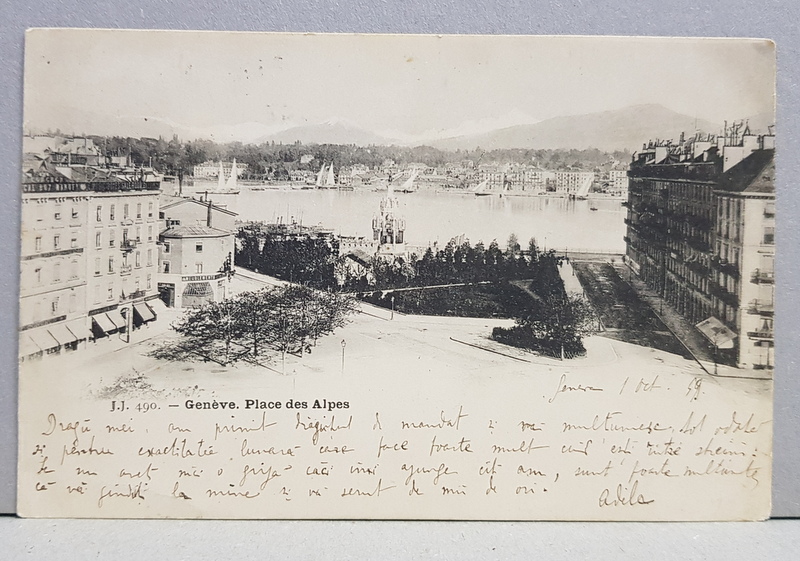 J.J. 490. — Genève. Place des Alpes
Geneva 1 Oct. 99.
Dragii mei, am primit drăguțul de mandat și vă mulțumesc, tot odată
și pentru exactitatea lunară care face foarte mult când ești între streini:
de nu aveți nici o grijă căci îmi ajunge cât am, sunt foarte
că vă gândiți la mine și vă sărut de mii de ori.
Adela